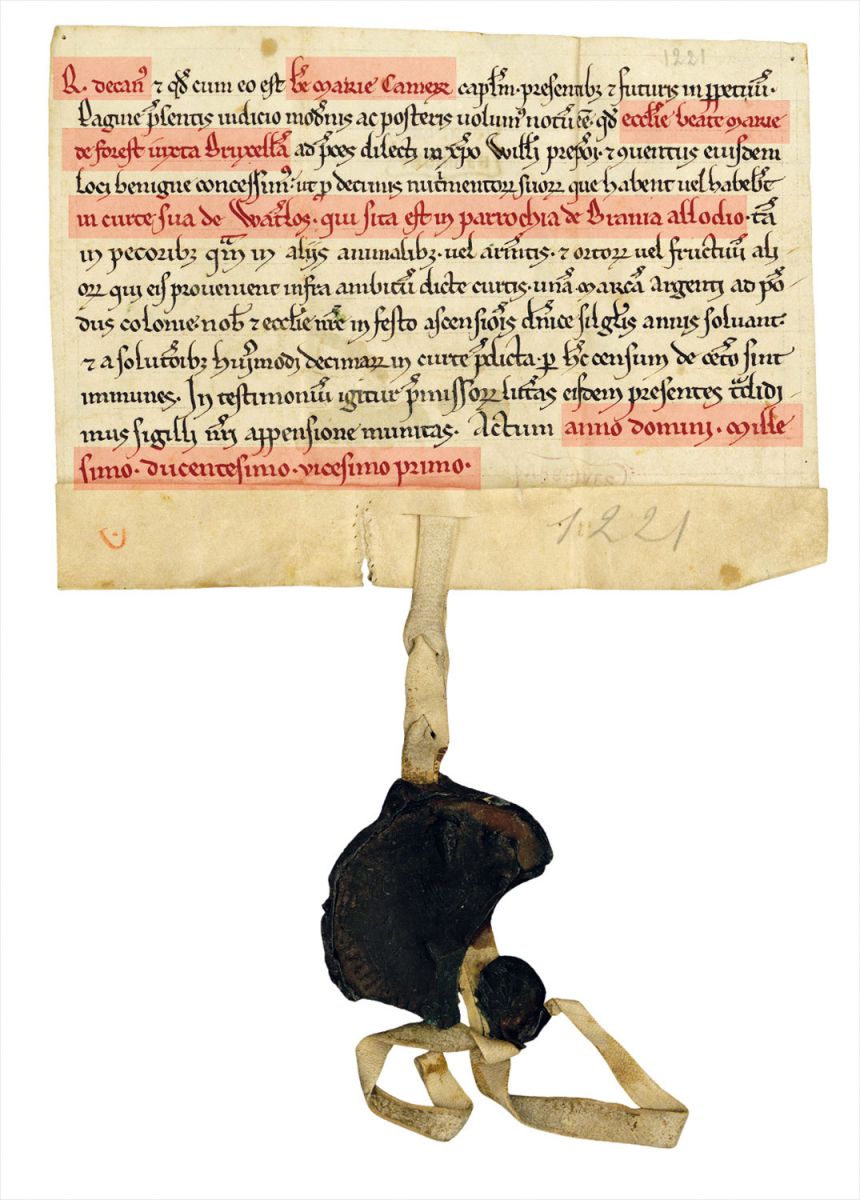 1221
R. decan⁹ ⁊ qd̄ cum eo est bē marie Camer̄ capl̄m. presentibꝫ ⁊ futuris in ꝑpetuū.
Pagine p̄sentis indicio modnis ac posteris uolum⁹ notū eē. qd̄ ecclīe beate marie
de forest iuxta Bruxellā ad p̄ces dilecti in xp̄o Willī prepoi. ⁊ ꝯuentus eiusdem
loci benigne concessim⁹. ut ꝓ decimis nutmentoꝝ suoꝝ que habent uel habebt̄
in curte sua de Waťlos. qui sita est in parrochia de Brania allodio. tā
in pecoribꝫ qm̄ in aliis animalibꝫ. uel armtis. ⁊ ortoꝝ uel fructuū ali
oꝝ qui eis proueniunt infra ambitū dicte curtis. unā marcā argenti ad pō
dus colonie. nob̄ ⁊ ecclīe nr̄e in festo ascensiōis dn̄ice silgl̄is annis soluant.
⁊ a solutōibꝫ hui⁹modi decimaꝝ in curte p̄dicta. ꝑ hc̄ censum de cet̄o sint
immunes. In testimoniū igitur p̄missoꝝ litt̄as eisdem presentes t̄didi
mus sigilli nr̄i appensione munitas. Actum anno domini. mille
simo. ducentesimo. vicesimo primo.
1221